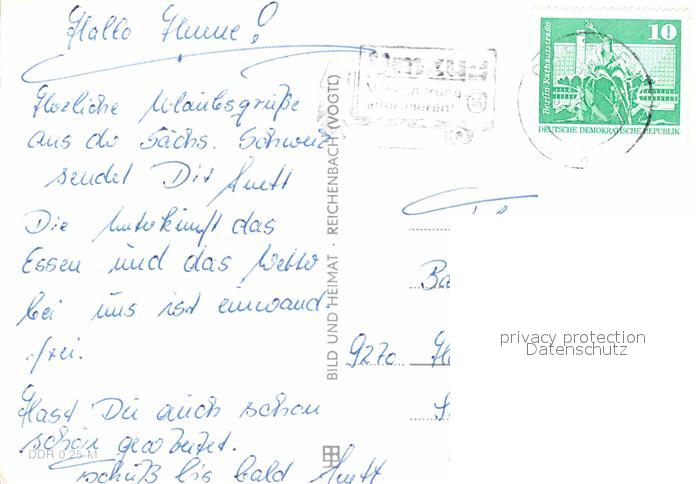 Hallo Hume!
Herzliche Urlaubsgrüße
aus de Sächs. Schweiz
sendet Dir Anett
Die Unterkunft das
Essen und das Wetter
bei uns ist einwand-
frei.
Hast Du auch schon
schön gearbeitet.
schüß bis bald Anett
DDR 0,25 M
BILD UND HEIMAT · REICHENBACH (VOGTL)
10
Berlin-Rathausstraße
DEUTSCHE DEMOKRATISCHE REPUBLIK
Ba
9270
privacy protection
Datenschutz